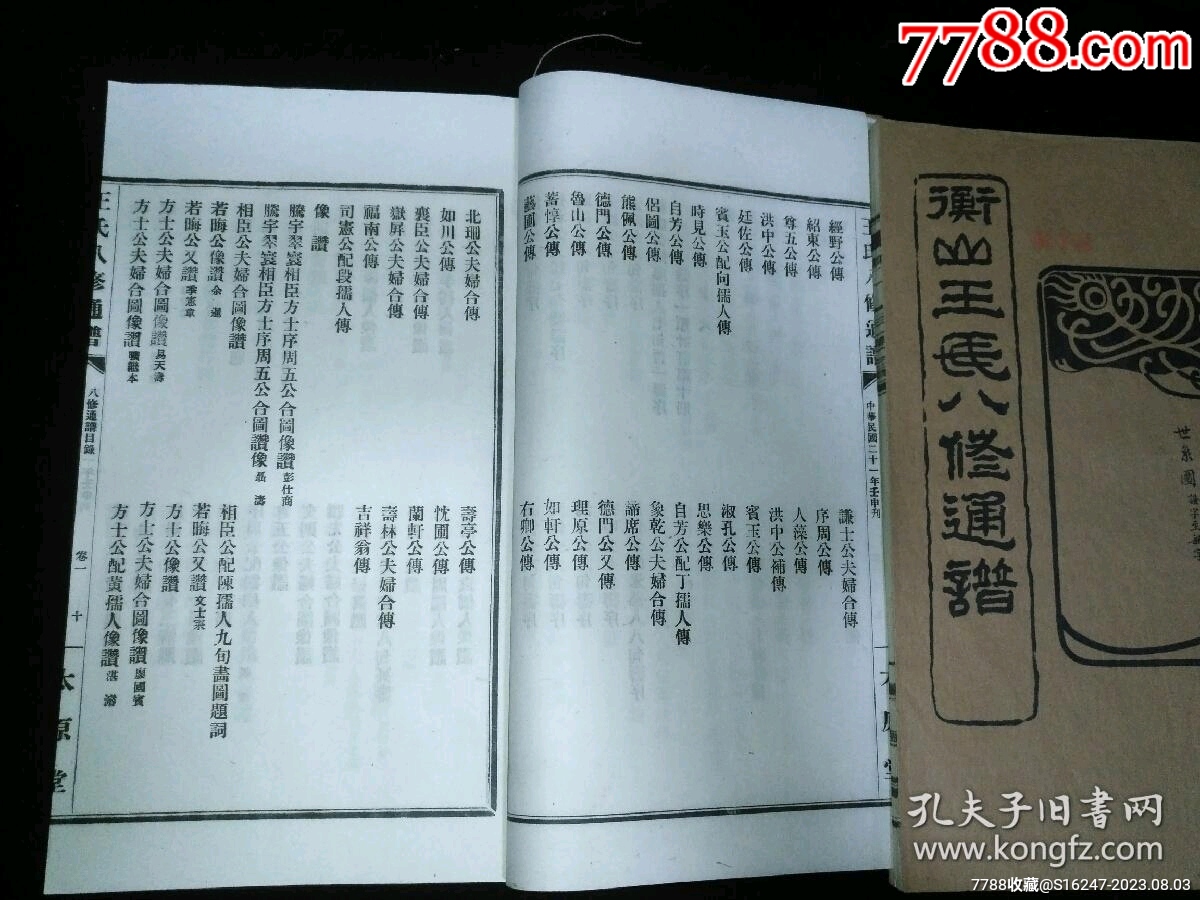 7788.com
衡山王氏八修通譜
中華民國二十一年壬申刊
經野公傳
紹東公傳
尊五公傳
洪中公傳
廷佐公傳
賓玉公配向孺人傳
時見公傳
自芳公傳
侶圃公傳
熊佩公傳
德門公傳
魯山公傳
蓄惇公傳
藝圃公傳
謙士公夫婦合傳
序周公傳
人藻公傳
洪中公補傳
賓玉公傳
淑孔公傳
思樂公傳
自芳公配丁孺人傳
象乾公夫婦合傳
諦席公傳
德門公又傳
理原公傳
如軒公傳
右卿公傳
北珊公夫婦合傳
如川公傳
襄臣公夫婦合傳
嶽屏公夫婦合傳
福南公傳
司憲公配段孺人傳
像讚
騰宇翠寰相臣方士序周五公合圖像讚 彭仕商
騰宇翠寰相臣方士序周五公合圖讚像 聶濤
相臣公夫婦合圖像讚
若晦公像讚 余遜
若晦公又讚 季憲章
方士公夫婦合圖像讚 易天濤
方士公夫婦合圖像讚 曠繼本
壽亭公傳
忱圃公傳
蘭軒公傳
壽林公夫婦合傳
吉祥翁傳
相臣公配陳孺人九旬壽圖題詞
若晦公又讚 文士棻
方士公像讚
方士公夫婦合圖像讚 廖國賓
方士公配黃孺人像讚 湛濬
王氏八修通譜
八修通譜目錄
卷一
十
太原堂
孔夫子旧书网
www.kongfz.com
7788收藏@S16247-2023.08.03